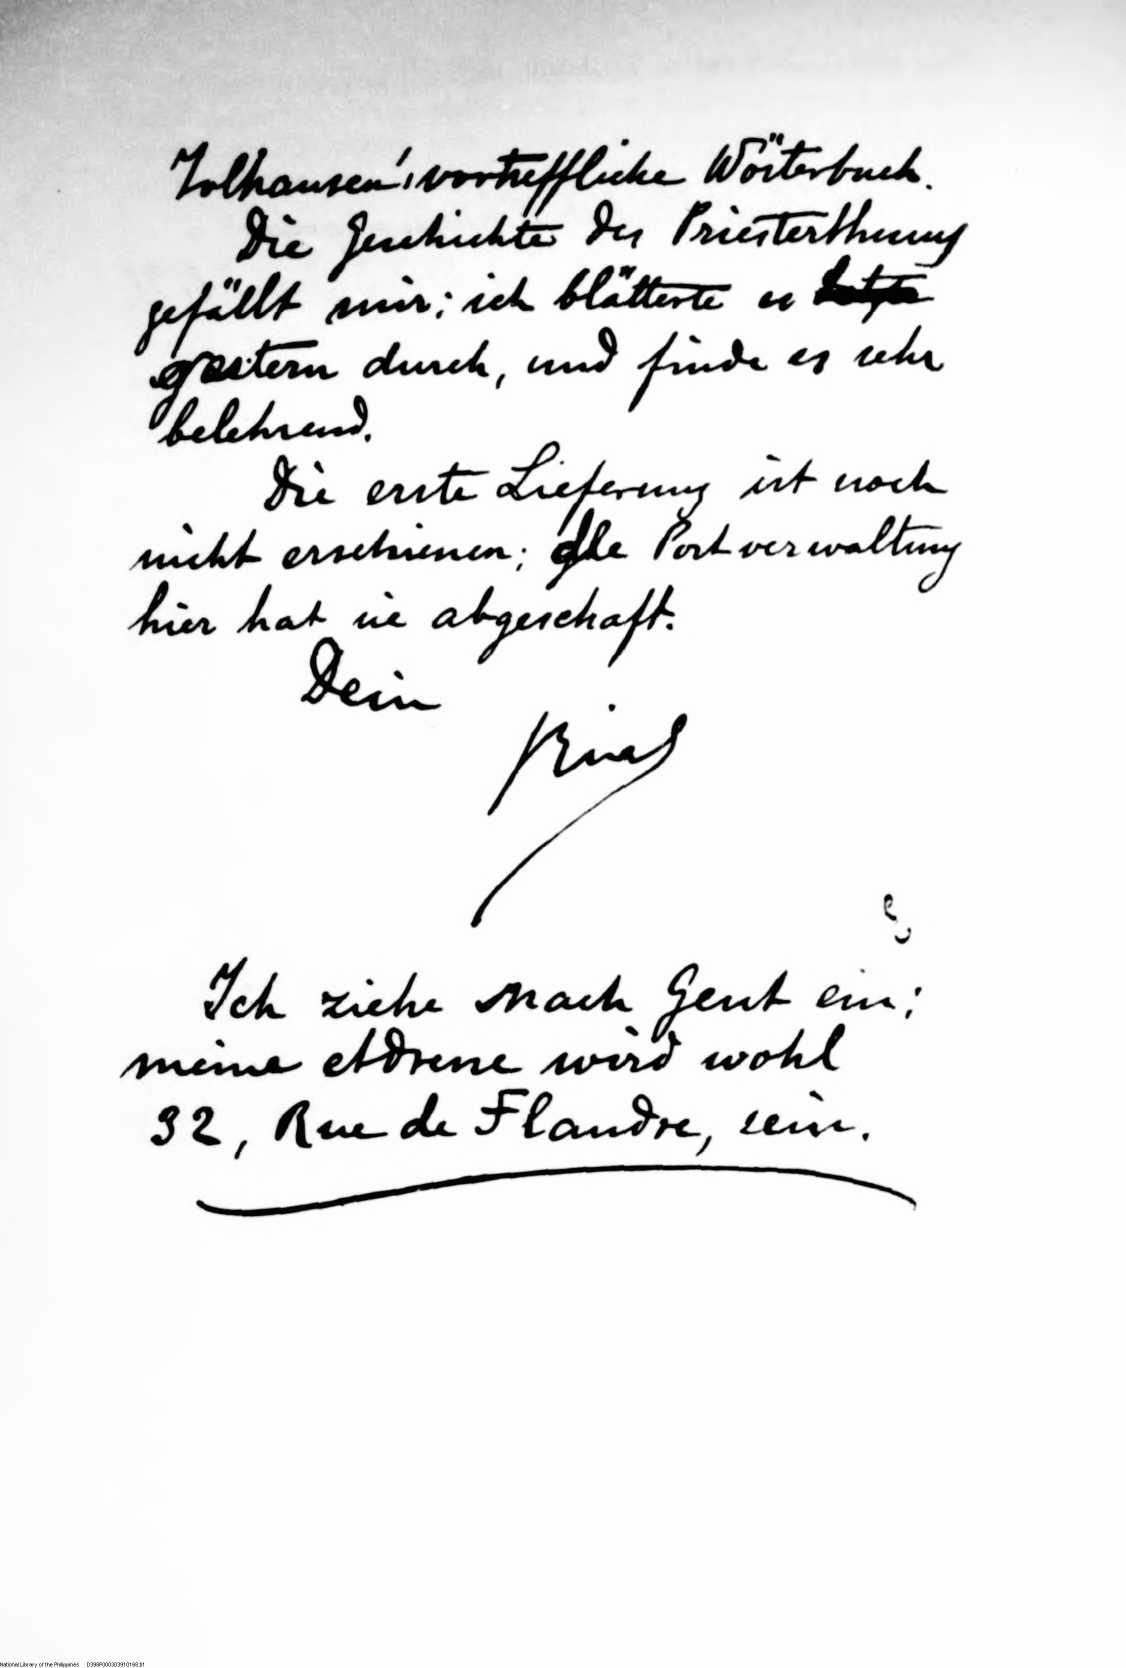 Tolhausen's vortreffliche Wörterbuch.
Die Geschichte des Priesterthums
gefällt mir; ich blätterte es
gestern durch, und finde es sehr
belehrend.
Die erste Lieferung ist noch
nicht erschienen; die Postverwaltung
hier hat sie abgeschaft.
Dein
Rizal
Ich ziehe nach Gent ein;
meine Adresse wird wohl
32, Rue de Flandre, sein.
National Library of the Philippines